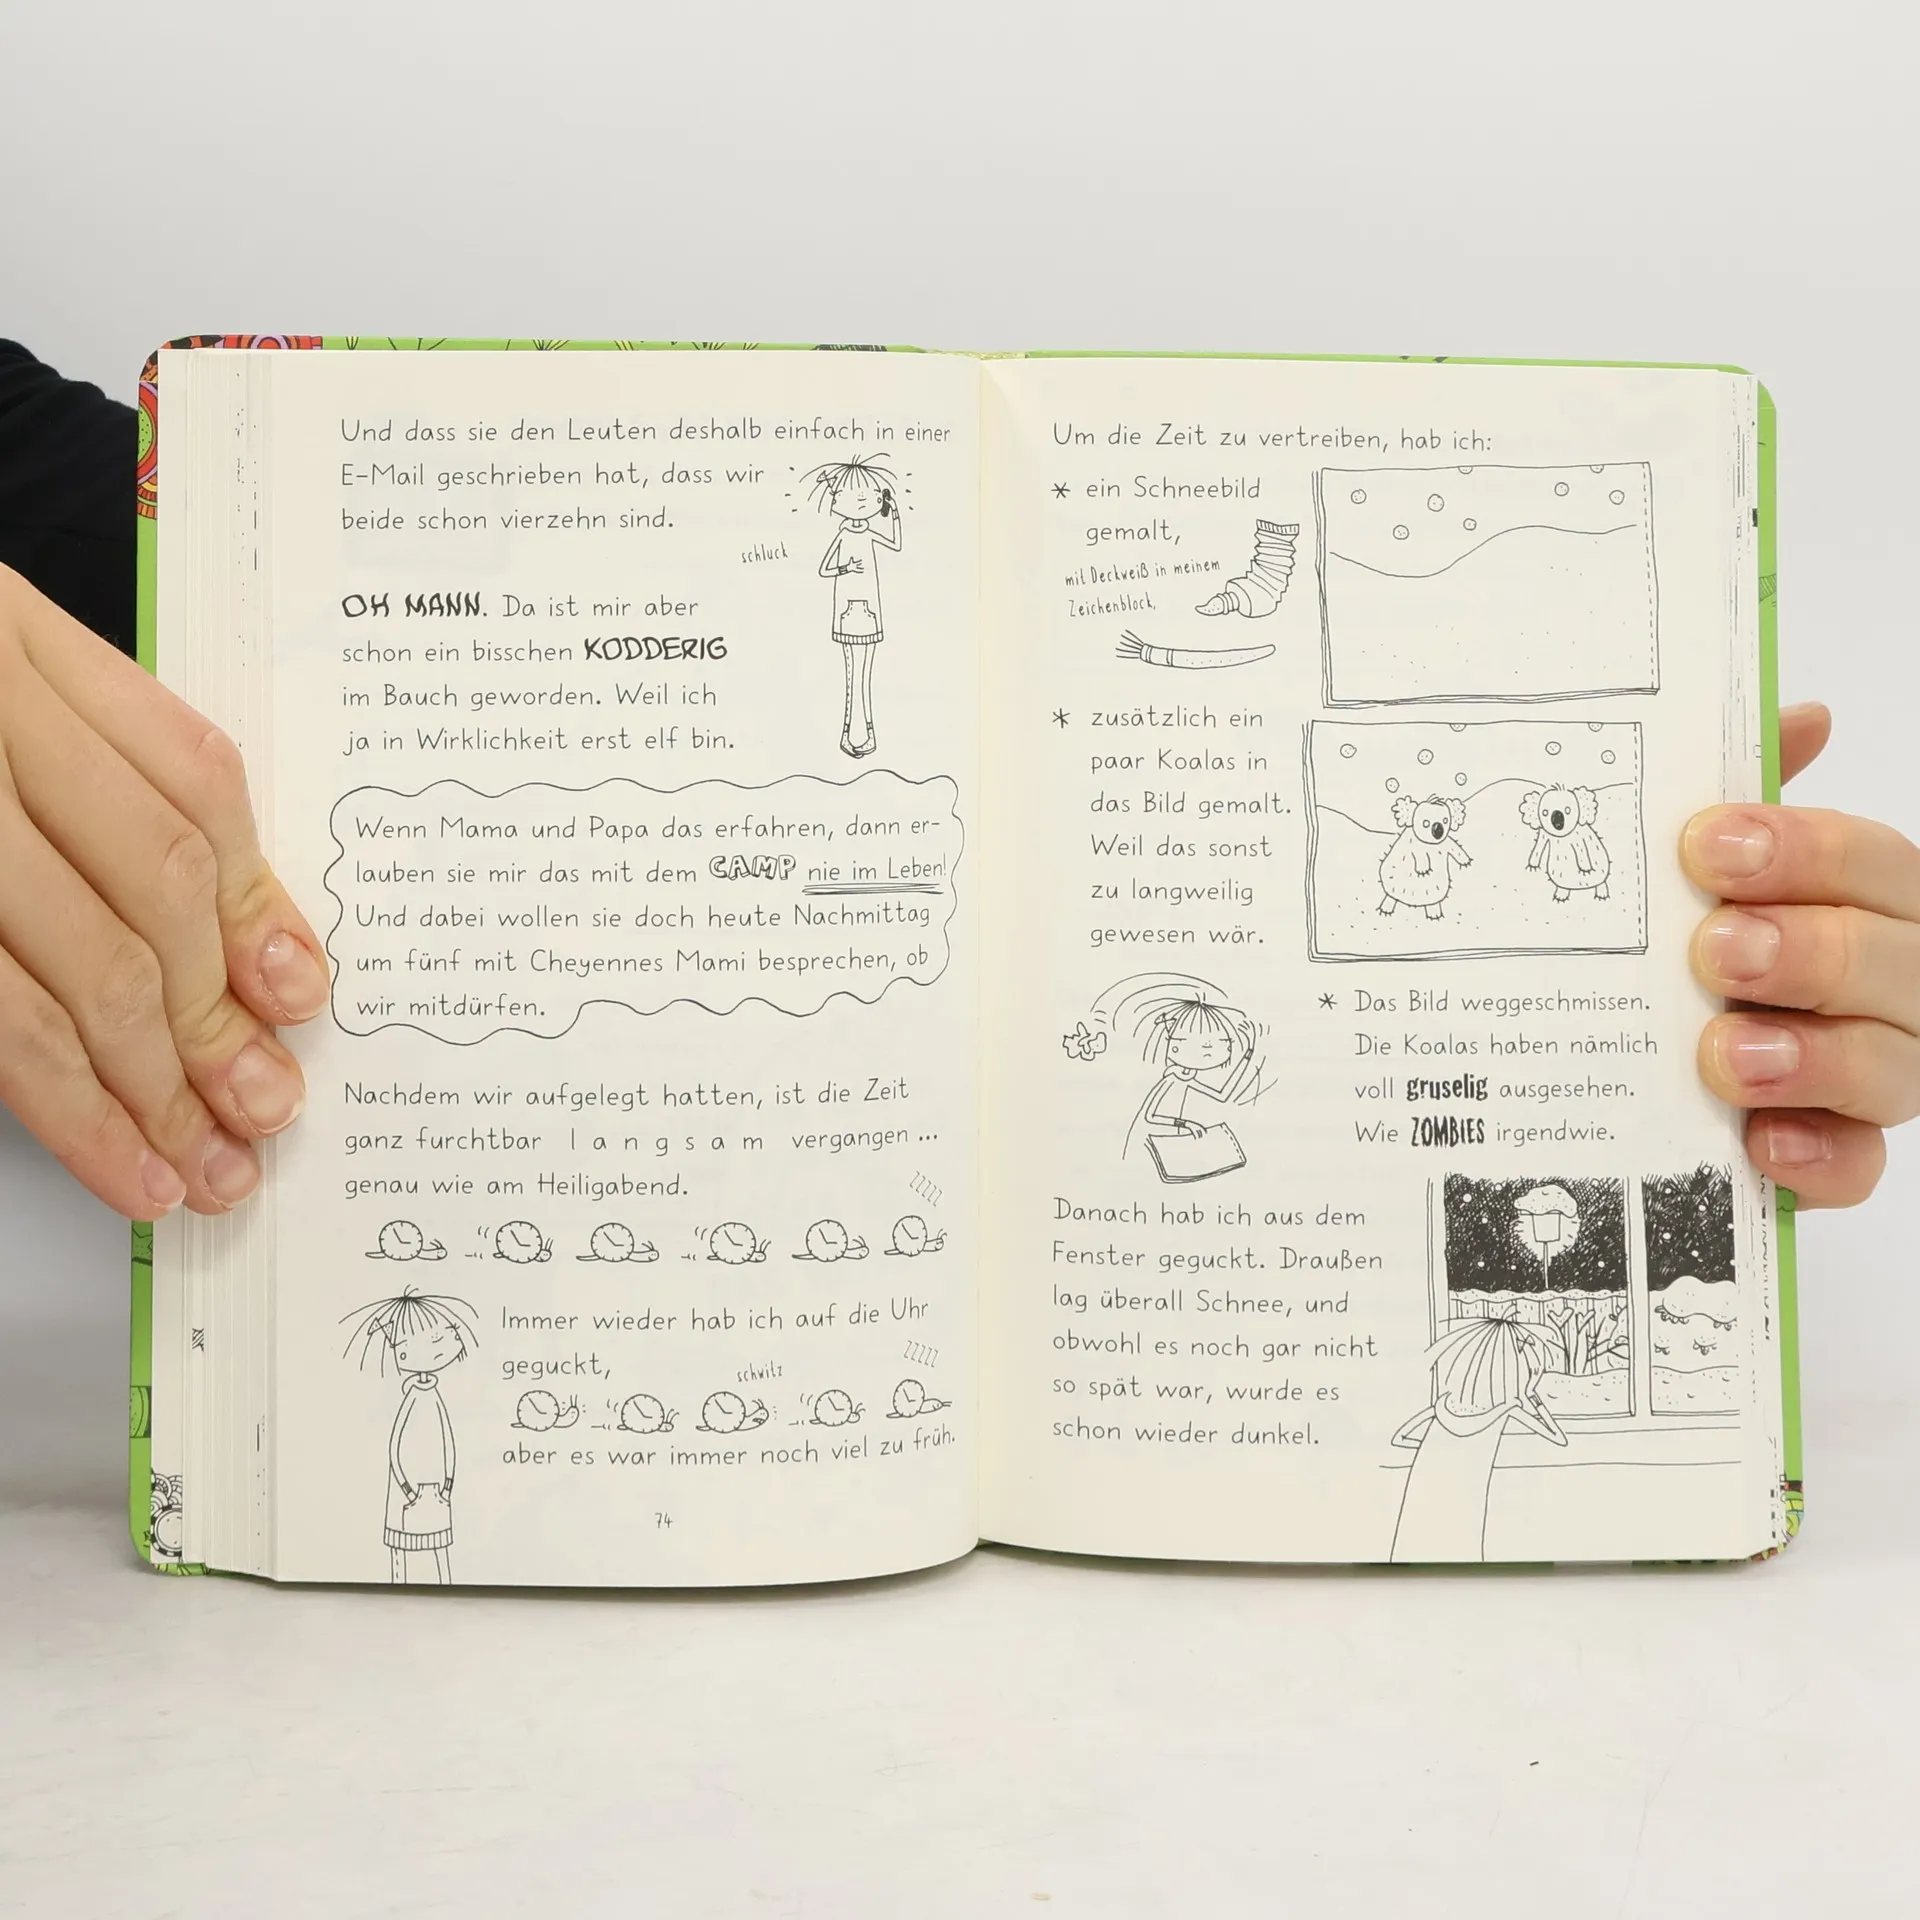 Und dass sie den Leuten deshalb einfach in einer
E-Mail geschrieben hat, dass wir
beide schon vierzehn sind.
schluck
OH MANN. Da ist mir aber
schon ein bisschen KODDERIG
im Bauch geworden. Weil ich
ja in Wirklichkeit erst elf bin.
Wenn Mama und Papa das erfahren, dann er-
lauben sie mir das mit dem CAMP nie im Leben!
Und dabei wollen sie doch heute Nachmittag
um fünf mit Cheyennes Mami besprechen, ob
wir mitdürfen.
Nachdem wir aufgelegt hatten, ist die Zeit
ganz furchtbar l a n g s a m vergangen ...
genau wie am Heiligabend.
zzzzz
Immer wieder hab ich auf die Uhr
geguckt,
schwitz
zzzzz
aber es war immer noch viel zu früh.
74
Um die Zeit zu vertreiben, hab ich:
* ein Schneebild
gemalt,
mit Deckweiß in meinem
Zeichenblock,
* zusätzlich ein
paar Koalas in
das Bild gemalt.
Weil das sonst
zu langweilig
gewesen wär.
* Das Bild weggeschmissen.
Die Koalas haben nämlich
voll gruselig ausgesehen.
Wie ZOMBIES irgendwie.
Danach hab ich aus dem
Fenster geguckt. Draußen
lag überall Schnee, und
obwohl es noch gar nicht
so spät war, wurde es
schon wieder dunkel.